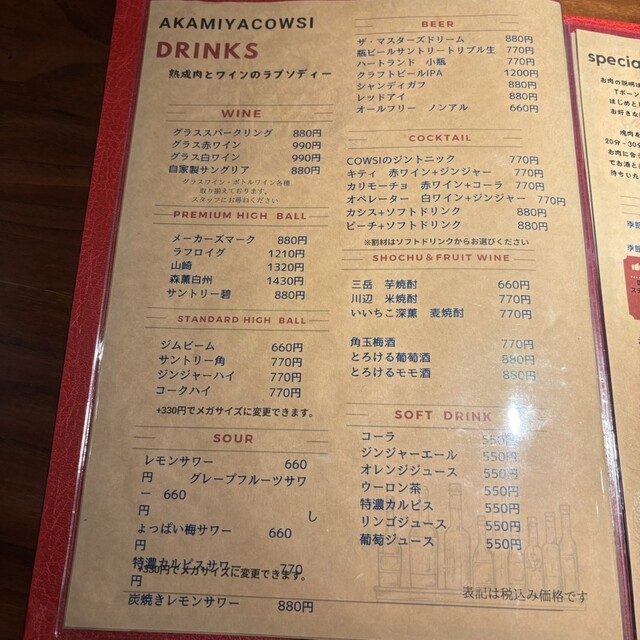 AKAMIYACOWSI
DRINKS
熟成肉とワインのラプソディー
WINE
グラススパークリング 880円
グラス赤ワイン 990円
グラス白ワイン 990円
自家製サングリア 880円
グラスワイン・ボトルワイン各種
取り揃えております。
スタッフにお尋ねください
PREMIUM HIGH BALL
メーカーズマーク 880円
ラフロイグ 1210円
山崎 1320円
森薫白州 1430円
サントリー碧 880円
STANDARD HIGH BALL
ジムビーム 660円
サントリー角 770円
ジンジャーハイ 770円
コークハイ 770円
+330円でメガサイズに変更できます。
SOUR
レモンサワー 660
円 グレープフルーツサワ
ー 660
円 し
ょっぱい梅サワー 660
円
特濃カルピスサワー 770
円
+330円でメガサイズに変更できます。
炭焼きレモンサワー 880円
BEER
ザ・マスターズドリーム 880円
瓶ビールサントリートリプル生 770円
ハートランド 小瓶 770円
クラフトビールIPA 1200円
シャンディガフ 880円
レッドアイ 880円
オールフリー ノンアル 660円
COCKTAIL
COWSIのジントニック 770円
キティ 赤ワイン+ジンジャー 770円
カリモーチョ 赤ワイン+コーラ 770円
オペレーター 白ワイン+ジンジャー 770円
カシス+ソフトドリンク 880円
ピーチ+ソフトドリンク 880円
※割材はソフトドリンクからお選びください
SHOCHU&FRUIT WINE
三岳 芋焼酎 660円
川辺 米焼酎 770円
いいちこ深薫 麦焼酎 770円
角玉梅酒 770円
とろける葡萄酒 880円
とろけるモモ酒 880円
SOFT DRINK
コーラ 550円
ジンジャーエール 550円
オレンジジュース 550円
ウーロン茶 550円
特濃カルピス 550円
リンゴジュース 550円
葡萄ジュース 550円
表記は税込み価格です
specia
お肉の説明は
Tボーン
はじめと
お好きな
塊肉を
20分-30分
お肉に合
でお酒と
待ちいた
季節
季節